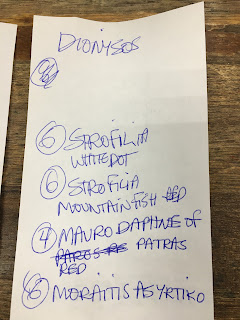 DIONYSOS
6 STROFILIA
WHITEDOT
6 STROFILIA
MOUNTAINFISH RED
4 MAVRO DAPHNE OF
PATRAS
RED
6 MORAITIS ASYRTIKO